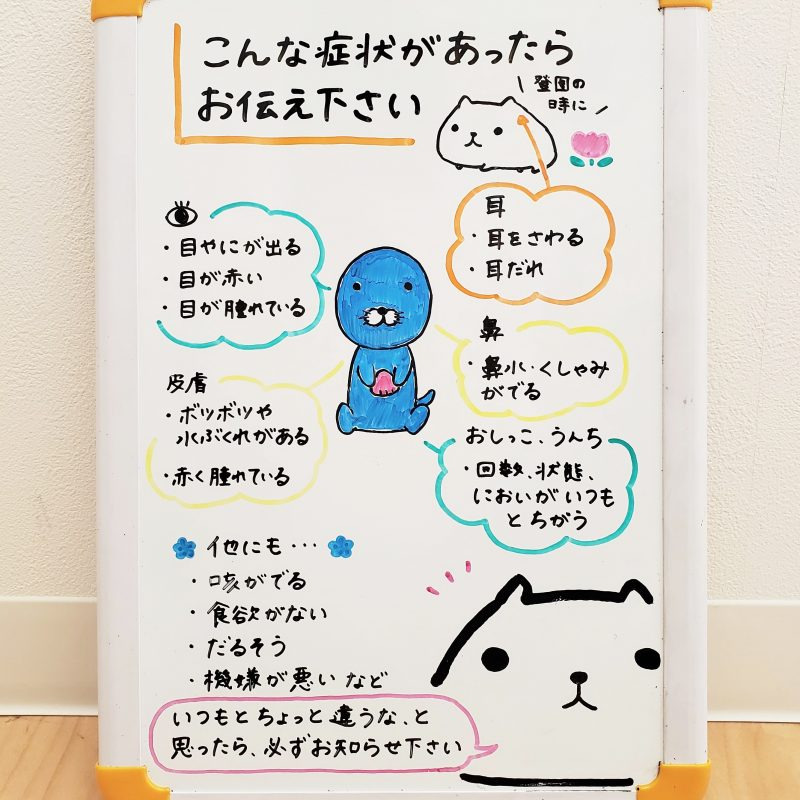 こんな症状があったら
お伝え下さい
登園の
時に
・目やにが出る
・目が赤い
・目が腫れている
耳
・耳をさわる
・耳だれ
鼻
・鼻水・くしゃみ
がでる
皮膚
・ボツボツや
水ぶくれがある
・赤く腫れている
おしっこ、うんち
・回数、状態、
においがいつも
とちがう
他にも…
・咳がでる
・食欲がない
・だるそう
・機嫌が悪いなど
いつもとちょっと違うな、と
思ったら、必ずお知らせ下さい